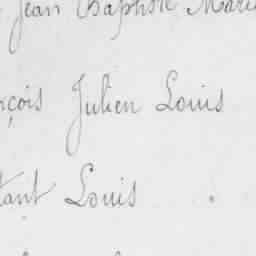 Jean Baptiste Marie
rçois Julien Louis
tant Louis .